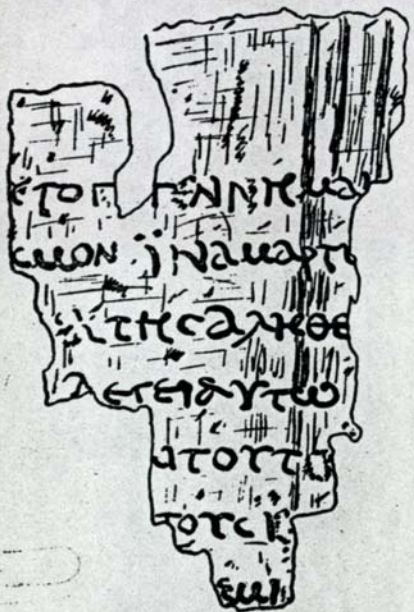 ΤΟΓ ΓΕΝΝΗΜΑΙ
CΜΟΝ ΪΝΑΜΑΡΤΥ
ΚΤΗCΑΛΗΘΕ
ΛΕΓΕΙΑΥΤΩ
ΙΤΟΥΤΟ
ΤΟΥCΙ
ΜΙ